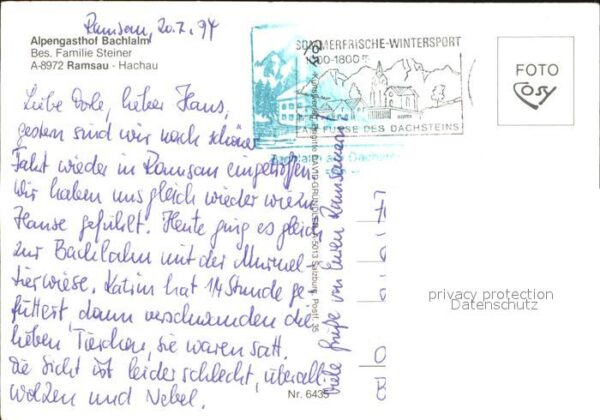 Ramsau, 20.7.94
Alpengasthof Bachlalm
Bes. Familie Steiner
A-8972 Ramsau - Hachau
Liebe Dole, lieber Hans,
gestern sind wir nach schöner
Fahrt wieder in Ramsau eingetroffen
Wir haben uns gleich wieder wie zu
Hause gefühlt. Heute ging es gleich
zur Bachlalm mit der Murmel-
tierwiese. Katrin hat 1/4 Stunde ge-
füttert, dann verschwanden die
lieben Tierchen, sie waren satt.
Die Sicht ist leider schlecht, überall
Wolken und Nebel.
Viele Grüße von Euren Ramsauern
SOMMERFRISCHE-WINTERSPORT
AM FUSSE DES DACHSTEINS
5013 Salzburg, Postf. 35
Nr. 6435
FOTO
Cosy
privacy protection
Datenschutz